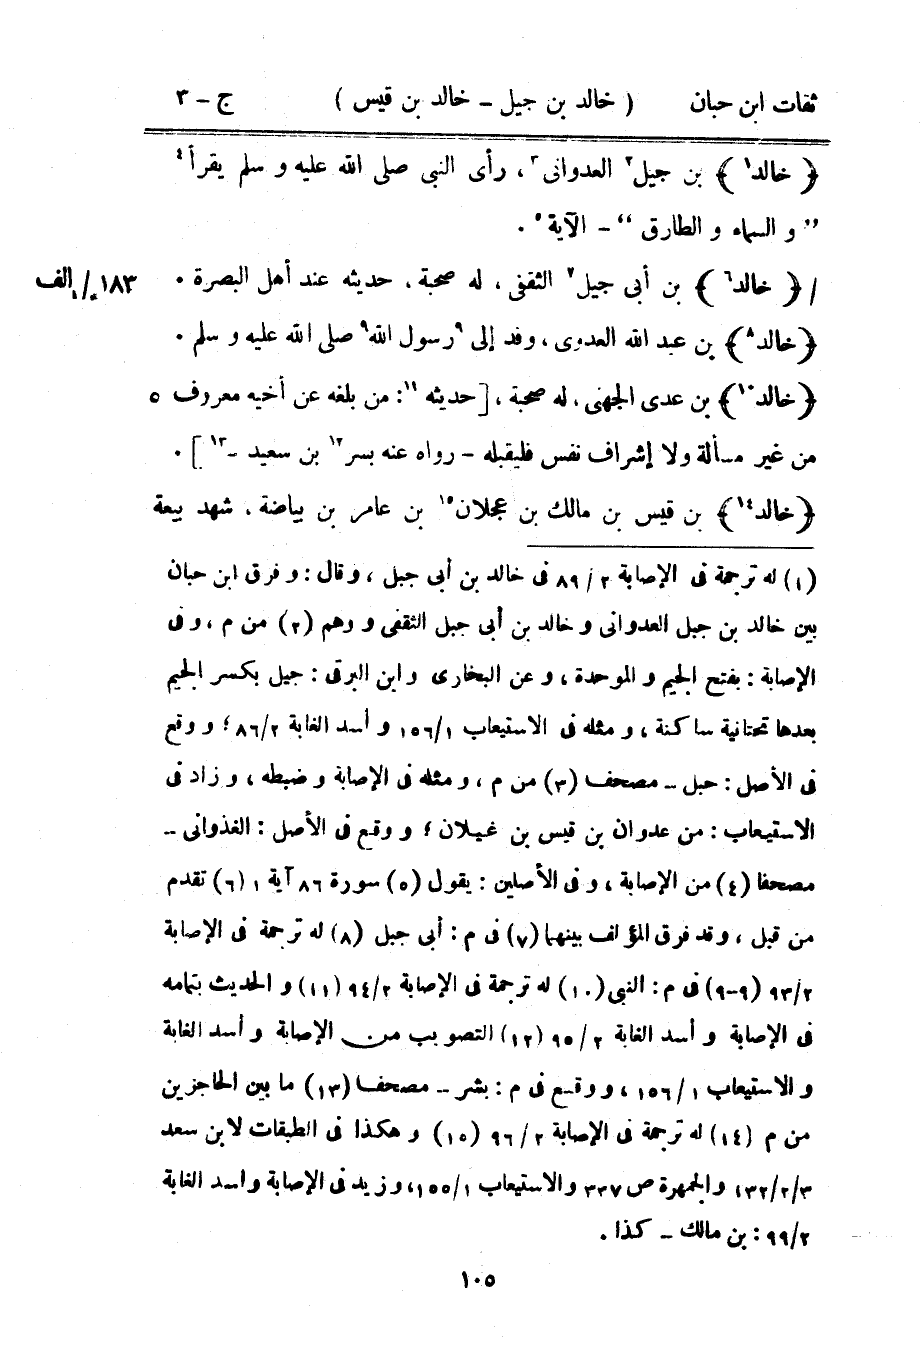 ثقات ابن حبان ( خالد بن جيل – خالد بن قيس ) ج – ٣
﴿ خالد١ ﴾ بن جيل٢ العدوانى٣ ، رأى النبى صلى الله عليه و سلم يقرأ٤
” و السماء و الطارق “ – الآية٥ .
/ ﴿ خالد٦ ﴾ بن أبى جيل٧ الثقفى ، له صحبة ، حديثه عند أهل البصرة . ١٨٣/ الف
﴿ خالد٨ ﴾ بن عبد الله العدوى ، وفد إلى ٩رسول الله٩ صلى الله عليه و سلم .
﴿ خالد١٠ ﴾ بن عدى الجهنى ، له صحبة ، [ حديثه١١ : من بلغه عن أخيه معروف ٥
من غير مسألة ولا إشراف نفس فليقبله – رواه عنه بسر١٢ بن سعيد –١٣ ] .
﴿ خالد١٤ ﴾ بن قيس بن مالك بن عجلان١٥ بن عامر بن بياضة ، شهد بيعة
(١) له ترجمة فى الإصابة ٢ / ٨٩ فى خالد بن أبى جبل ، وقال : و فرق ابن حبان
بين خالد بن جبل العدوانى و خالد بن أبى جبل الثقفى و وهم (٢) من م ، و فى
الإصابة : بفتح الجيم و الموحدة ، و عن البخارى و ابن البرقى : جيل بكسر الجيم
بعدها تحتانية ساكنة ، و مثله فى الاستيعاب ١/ ١٥٦ و أسد الغابة ٢/ ٨٦ ؛ و وقع
فى الأصل : حبل – مصحفا (٣) من م ، و مثله فى الإصابة و ضبطه ، و زاد فى
الاستيعاب : من عدوان بن قيس بن غيلان ؛ و وقع فى الأصل : الغذوانى –
مصحفا (٤) من الإصابة ، و فى الأصلين : يقول (٥) سورة ٨٦ آية ١ (٦) تقدم
من قبل ، و قد فرق المؤلف بينهما (٧) فى م : أبى جبل (٨) له ترجمة فى الإصابة
٢/ ٩٣ (٩-٩) فى م : النبى (١٠) له ترجمة فى الإصابة ٢/ ٩٤ (١١) و الحديث بتمامه
فى الإصابة و أسد الغابة ٢ / ٩٥ (١٢) التصويب من الإصابة و أسد الغابة
و الاستيعاب ١ / ١٥٦ ، و وقع فى م : بشر – مصحفا (١٣) ما بين الحاجزين
من م (١٤) له ترجمة فى الإصابة ٢ / ٩٦ (١٥) و هكذا فى الطبقات لابن سعد
٣/٢/ ١٣٢ و الجمهرة ص ٣٣٧ و الاستيعاب ١/ ١٥٥، و زيد فى الإصابة و اسد الغابة
٢/ ٩٩ : بن مالك – كذا .
١٠٥